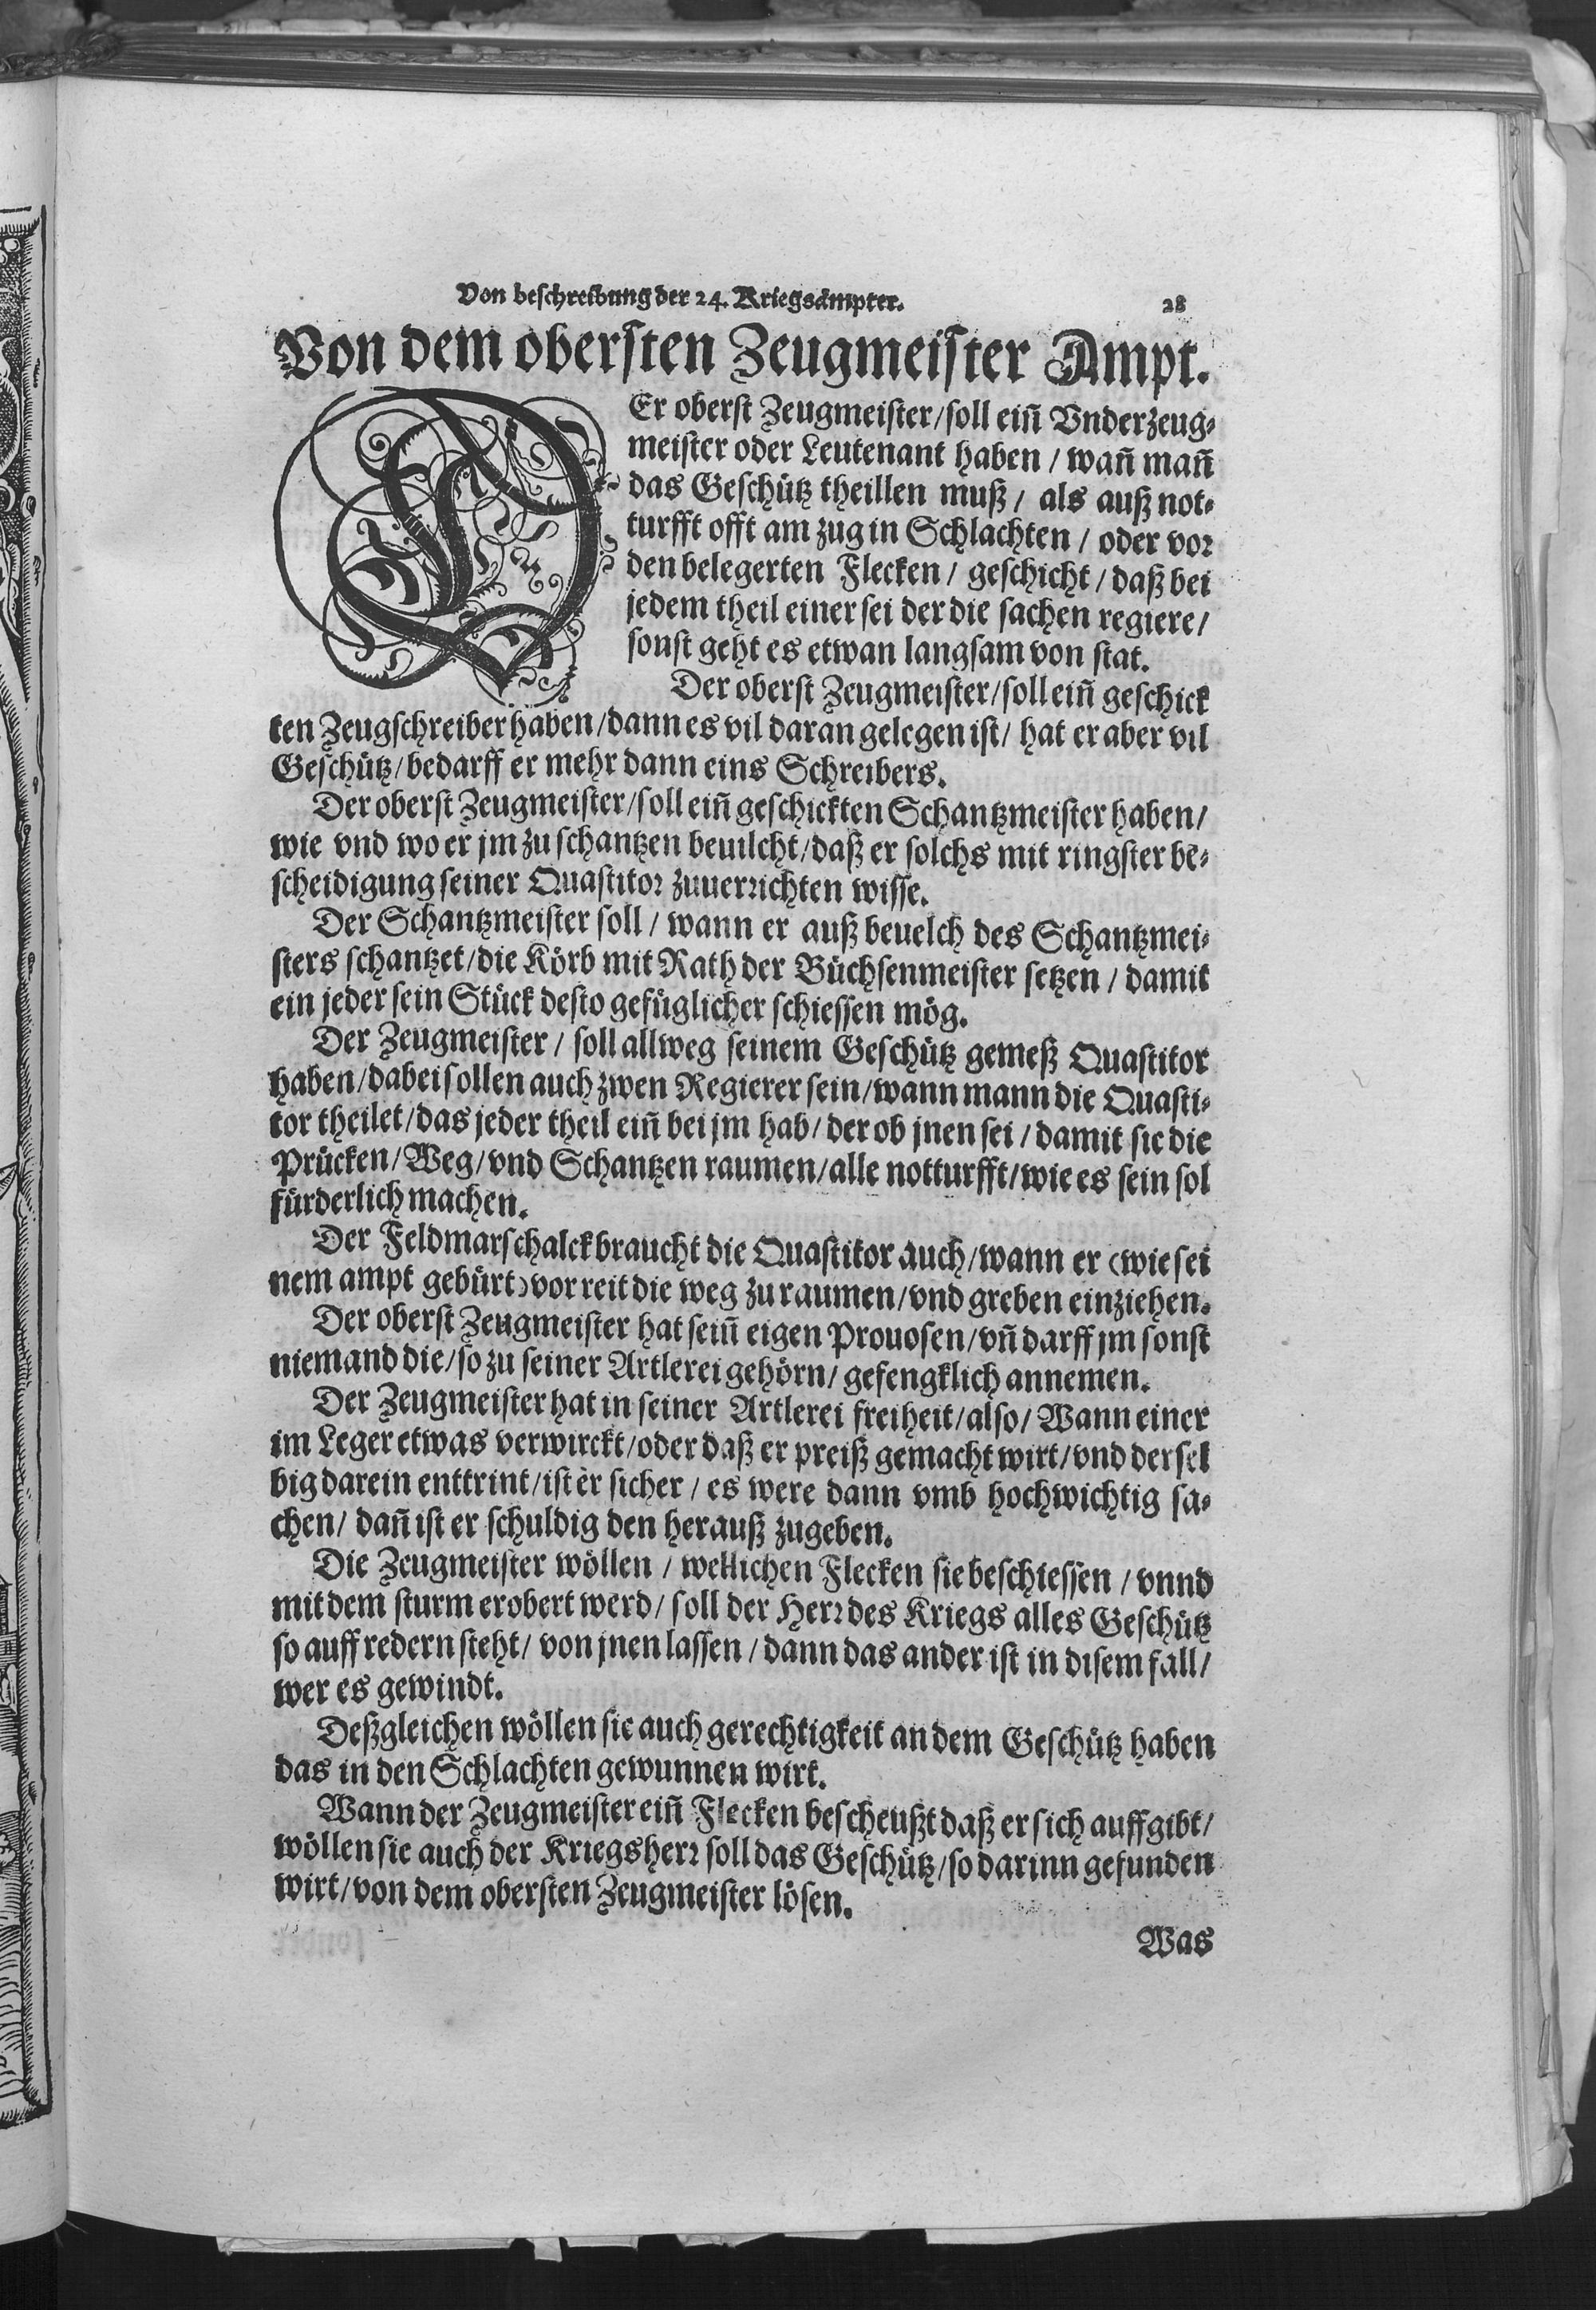 Von beschreibung der 24. Kriegsämpter. 28
Von dem obersten Zeugmeister Ampt.
DEr oberst Zeugmeister/soll eiñ Vnderzeug-
meister oder Leutenant haben / wañ mañ
das Geschütz theillen muß / als auß not-
turfft offt am zug in Schlachten / oder vor
den belegerten Flecken / geschicht / daß bei
jedem theil einer sei der die sachen regiere /
sonst geht es etwan langsam von stat.
Der oberst Zeugmeister/soll eiñ geschick
ten Zeugschreiber haben/dann es vil daran gelegen ist/ hat er aber vil
Geschütz/bedarff er mehr dann eins Schreibers.
Der oberst Zeugmeister/soll eiñ geschickten Schantzmeister haben/
wie vnd wo er jm zu schantzen beuilcht/daß er solchs mit ringster be-
scheidigung seiner Quastitor zuuerrichten wisse.
Der Schantzmeister soll / wann er auß beuelch des Schantzmei-
sters schantzet/die Körb mit Rath der Büchsenmeister setzen / damit
ein jeder sein Stück desto gefüglicher schiessen mög.
Der Zeugmeister / soll allweg seinem Geschütz gemeß Quastitor
haben/dabei sollen auch zwen Regierer sein/wann mann die Quasti-
tor theilet/das jeder theil eiñ bei jm hab/ der ob jnen sei / damit sie die
Prücken/Weg/vnd Schantzen raumen/alle notturfft/wie es sein sol
fürderlich machen.
Der Feldmarschalck braucht die Quastitor auch/wann er (wie sei
nem ampt gebürt) vor reit die weg zu raumen/vnd greben einziehen.
Der oberst Zeugmeister hat seiñ eigen Prouosen/vñ darff jm sonst
niemand die/so zu seiner Artlerei gehörn/ gefengklich annemen.
Der Zeugmeister hat in seiner Artlerei freiheit/also/ Wann einer
im Leger etwas verwirckt/oder daß er preiß gemacht wirt/vnd dersel
big darein enttrint/ist er sicher / es were dann vmb hochwichtig sa-
chen/ dañ ist er schuldig den herauß zugeben.
Die Zeugmeister wöllen / wellichen Flecken sie beschiessen / vnnd
mit dem sturm erobert werd/ soll der Herr des Kriegs alles Geschütz
so auff redern steht/ von jnen lassen / dann das ander ist in disem fall/
wer es gewindt.
Deßgleichen wöllen sie auch gerechtigkeit an dem Geschütz haben
das in den Schlachten gewunnen wirt.
Wann der Zeugmeister eiñ Flecken bescheußt daß er sich auffgibt/
wöllen sie auch der Kriegsherr soll das Geschütz/so darinn gefunden
wirt/von dem obersten Zeugmeister lösen.
Was